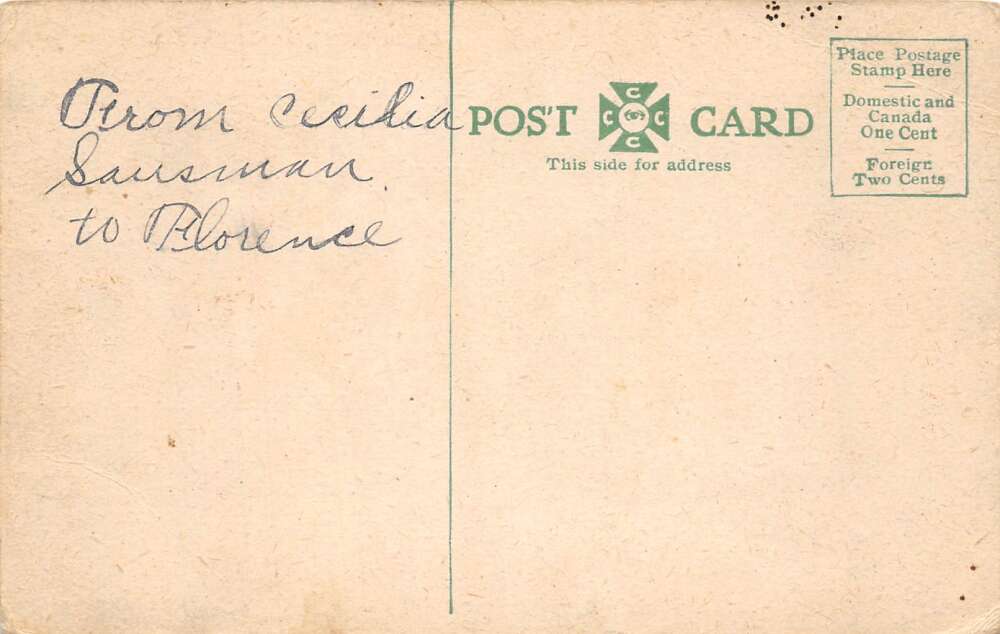 From Cecilia
Sausman
to Florence
POST CARD
C
C C
C
This side for address
Place Postage
Stamp Here
Domestic and
Canada
One Cent
Foreign
Two Cents